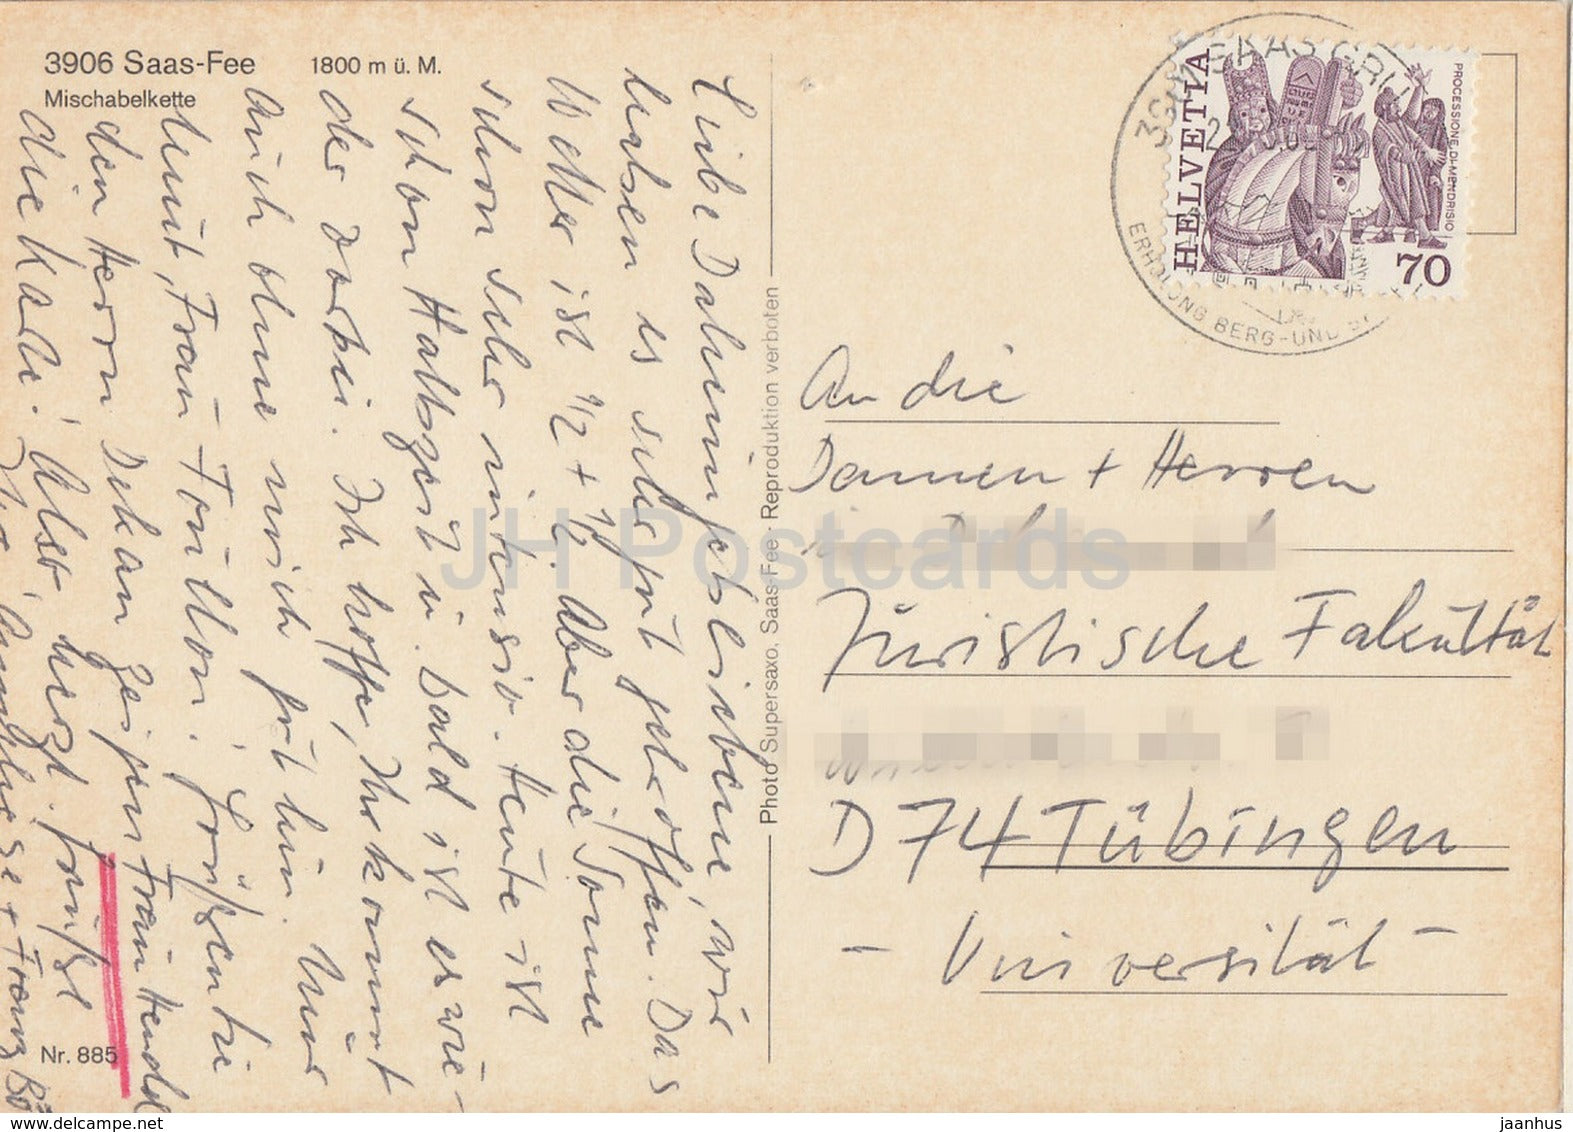 3906 Saas-Fee 1800 m ü. M.
Mischabelkette
Liebe Daheimgebliebene, wir
haben es sehr gut getroffen. Das
Wetter ist 1/2 + 1/2. Aber die Sonne
schon sehr intensiv. Heute ist
schon Halbzeit u. bald ist es wie-
der vorbei. Ich hoffe, Ihr kommt
auch ohne mich gut hin. Nur
Mut, Frau
den Herrn Dekan
die Karte! Aber herzl. Grüße
Ihre
Nr. 885
Photo Supersaxo, Saas-Fee · Reproduktion verboten
HELVETIA
PROCESSIONE DI MENDRISIO
70
SAAS GRU
ERHOLUNG BERG-UND
An die
Damen + Herren
Juristische Fakultät
D 74 Tübingen
- Universität -
JH Postcards
www.delcampe.net
jaanhus